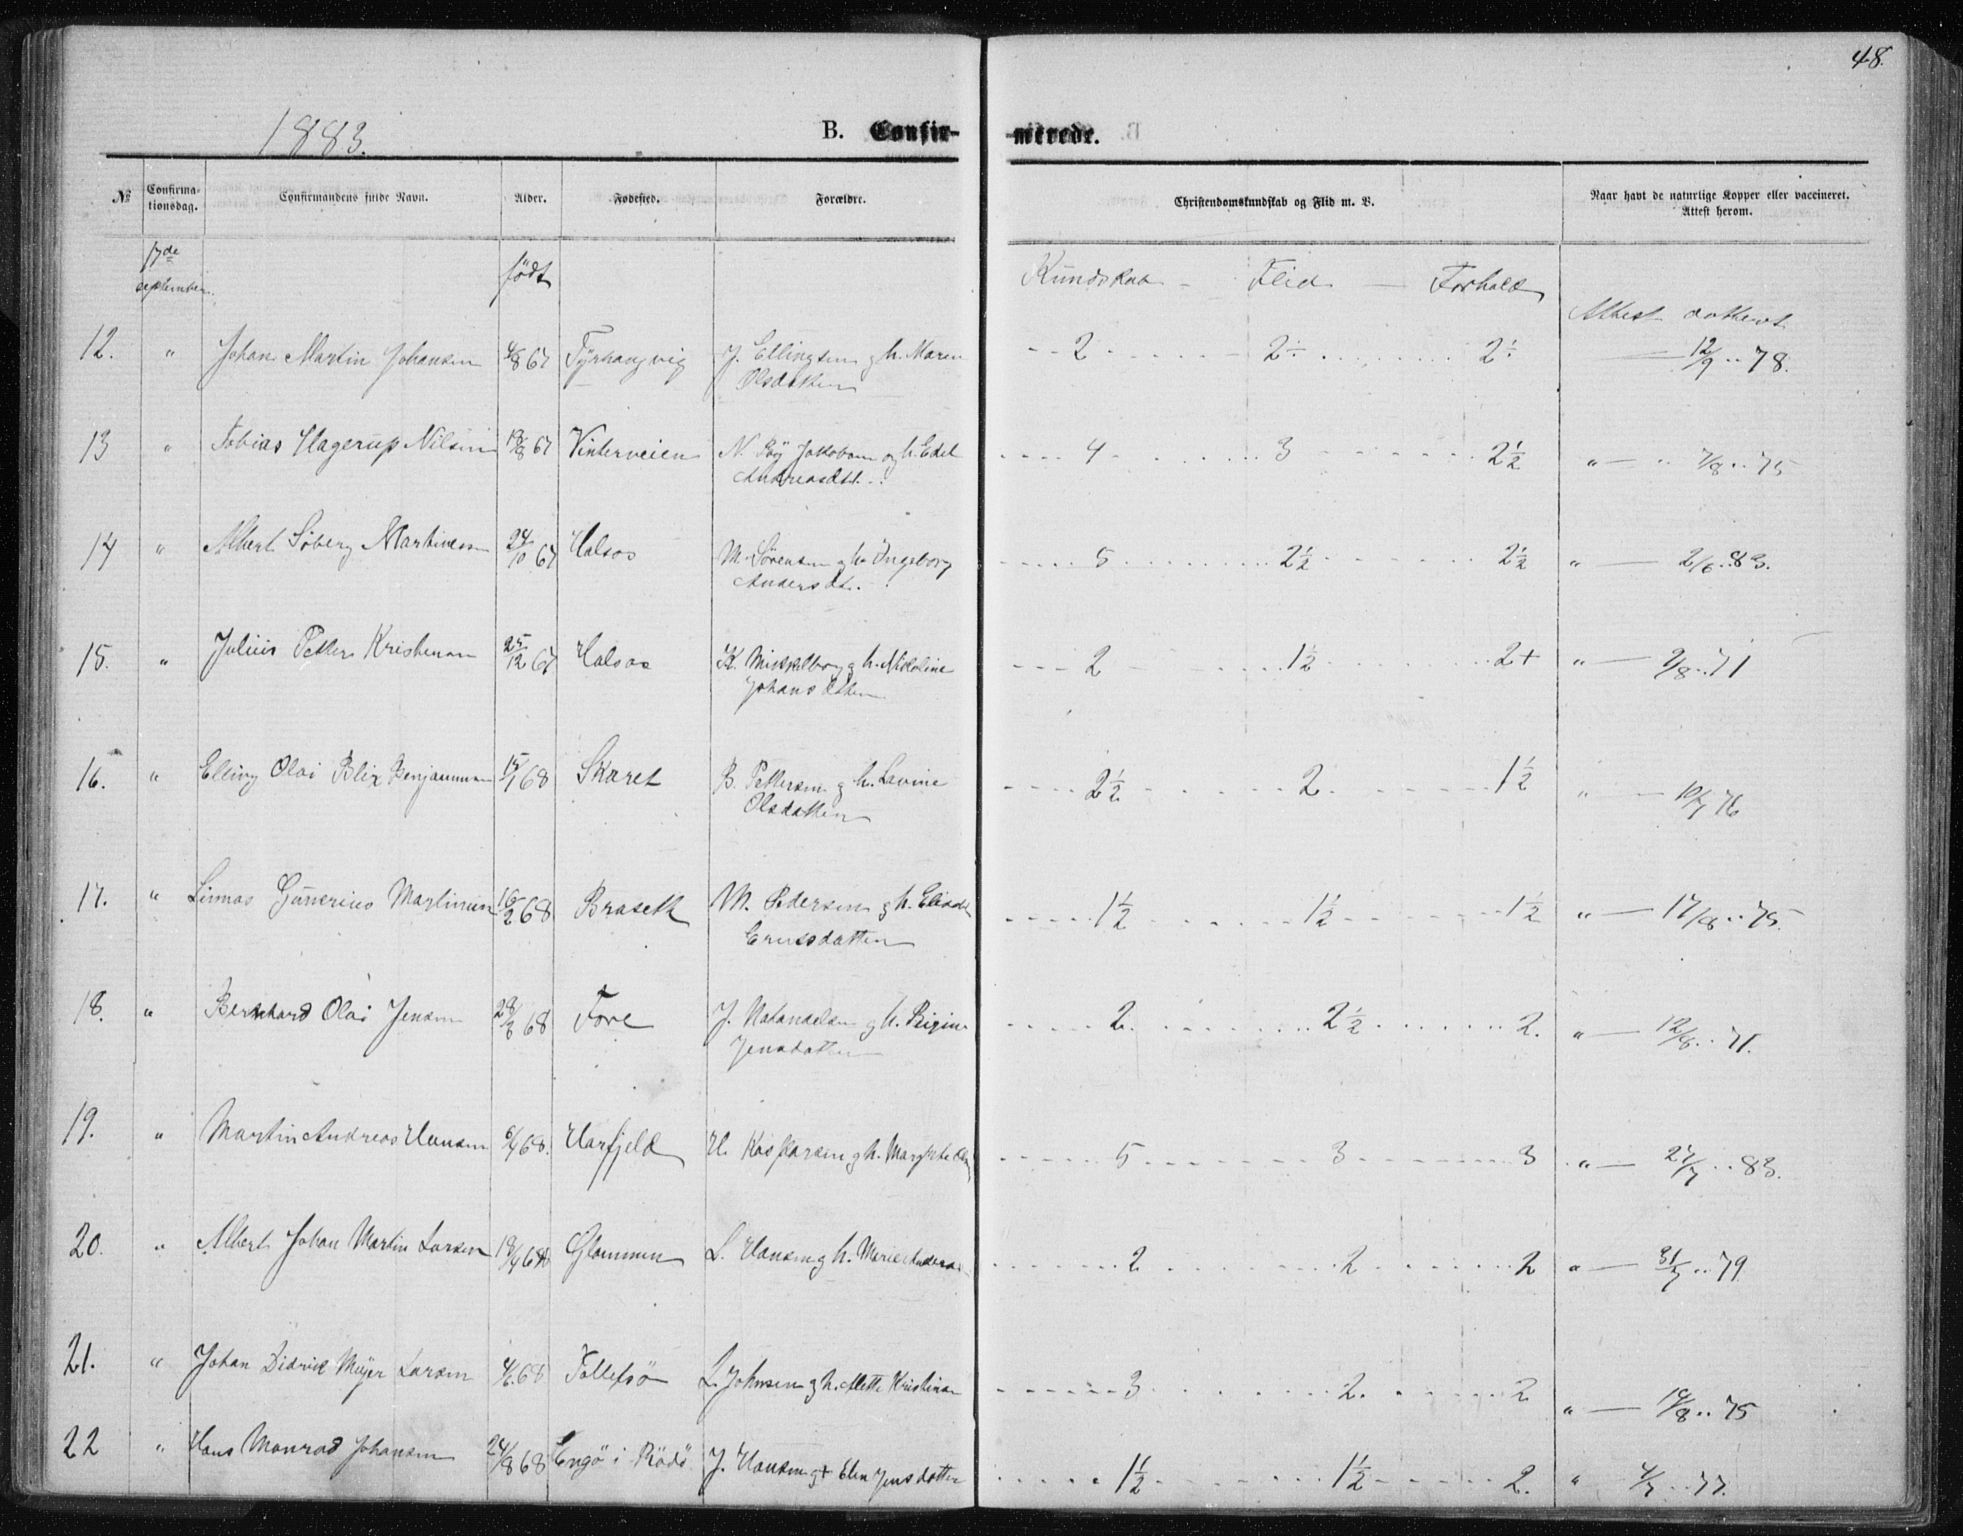 48.
1883.
B. Confir- merede.
№ Confirma-tionsdag. Confirmandens fulde Navn. Alder. Fødested. Forældre. Christendomskundskab og Flid m. V. Naar havt de naturlige Kopper eller vaccineret. Attest herom.
17de september født Kundskab - Flid - Forhold Attest dattert
12. " Johan Martin Johansen 4/8 67 J. Ellingsen og h. Maren Olsdatter 2 2÷ 2÷ 12/9 78.
13 " Tobias Hagerup Nilsen 19/8 67 Vinterveien N. Jakobsen og h. Edel Andreasdt. 4 3 2½ " 7/8 75
14 " Albert Søberg Martinesen 24/10 67 Halsos M. Sørensen og h. Ingeborg Andersdt. 5 2½ 2½ " 2/6 83.
15. " Julius Petter Kristensen 25/12 67 Halsos K. h. Nikoline Johansdatter 2 1½ 2+ " 9/8 71
16. " Elling Olai Blix Benjaminsen 15/1 68 Skaret B. Pettersen og h. Lavine Olsdatter 2½ 2 1½ " 10/7 76
17. " Linnas Gunerius Martinsen 16/2 68 Braseth M. Pedersen og h. 1½ 1½ 1½ " 17/8 75.
18. " Bernhard Olai Jensen 68 Fore J. Natanaelsen og h. Jensdatter 2. 2½ 2. " 12/8 71.
19. " Martin Andreas Hansen 6/4 68. Harfjeld H. Kaspersen og h. 5 3 3 " 27/7 83.
20. " Albert Johan Martin Larsen 18/4 68 Glommen L. Hansen og h. 2 2 2 " 31/7 79
21. " Johan Didrik Meyer Larsen 4/6 68 L. Johnsen og h. Mette Kristensen 3 2. 2 " 75
22 " Hans Monrad Johansen 24/8 68 Engö i Rödö J. Hansen og + Elen Jensdatter 1½ 1½ 2. " 77.